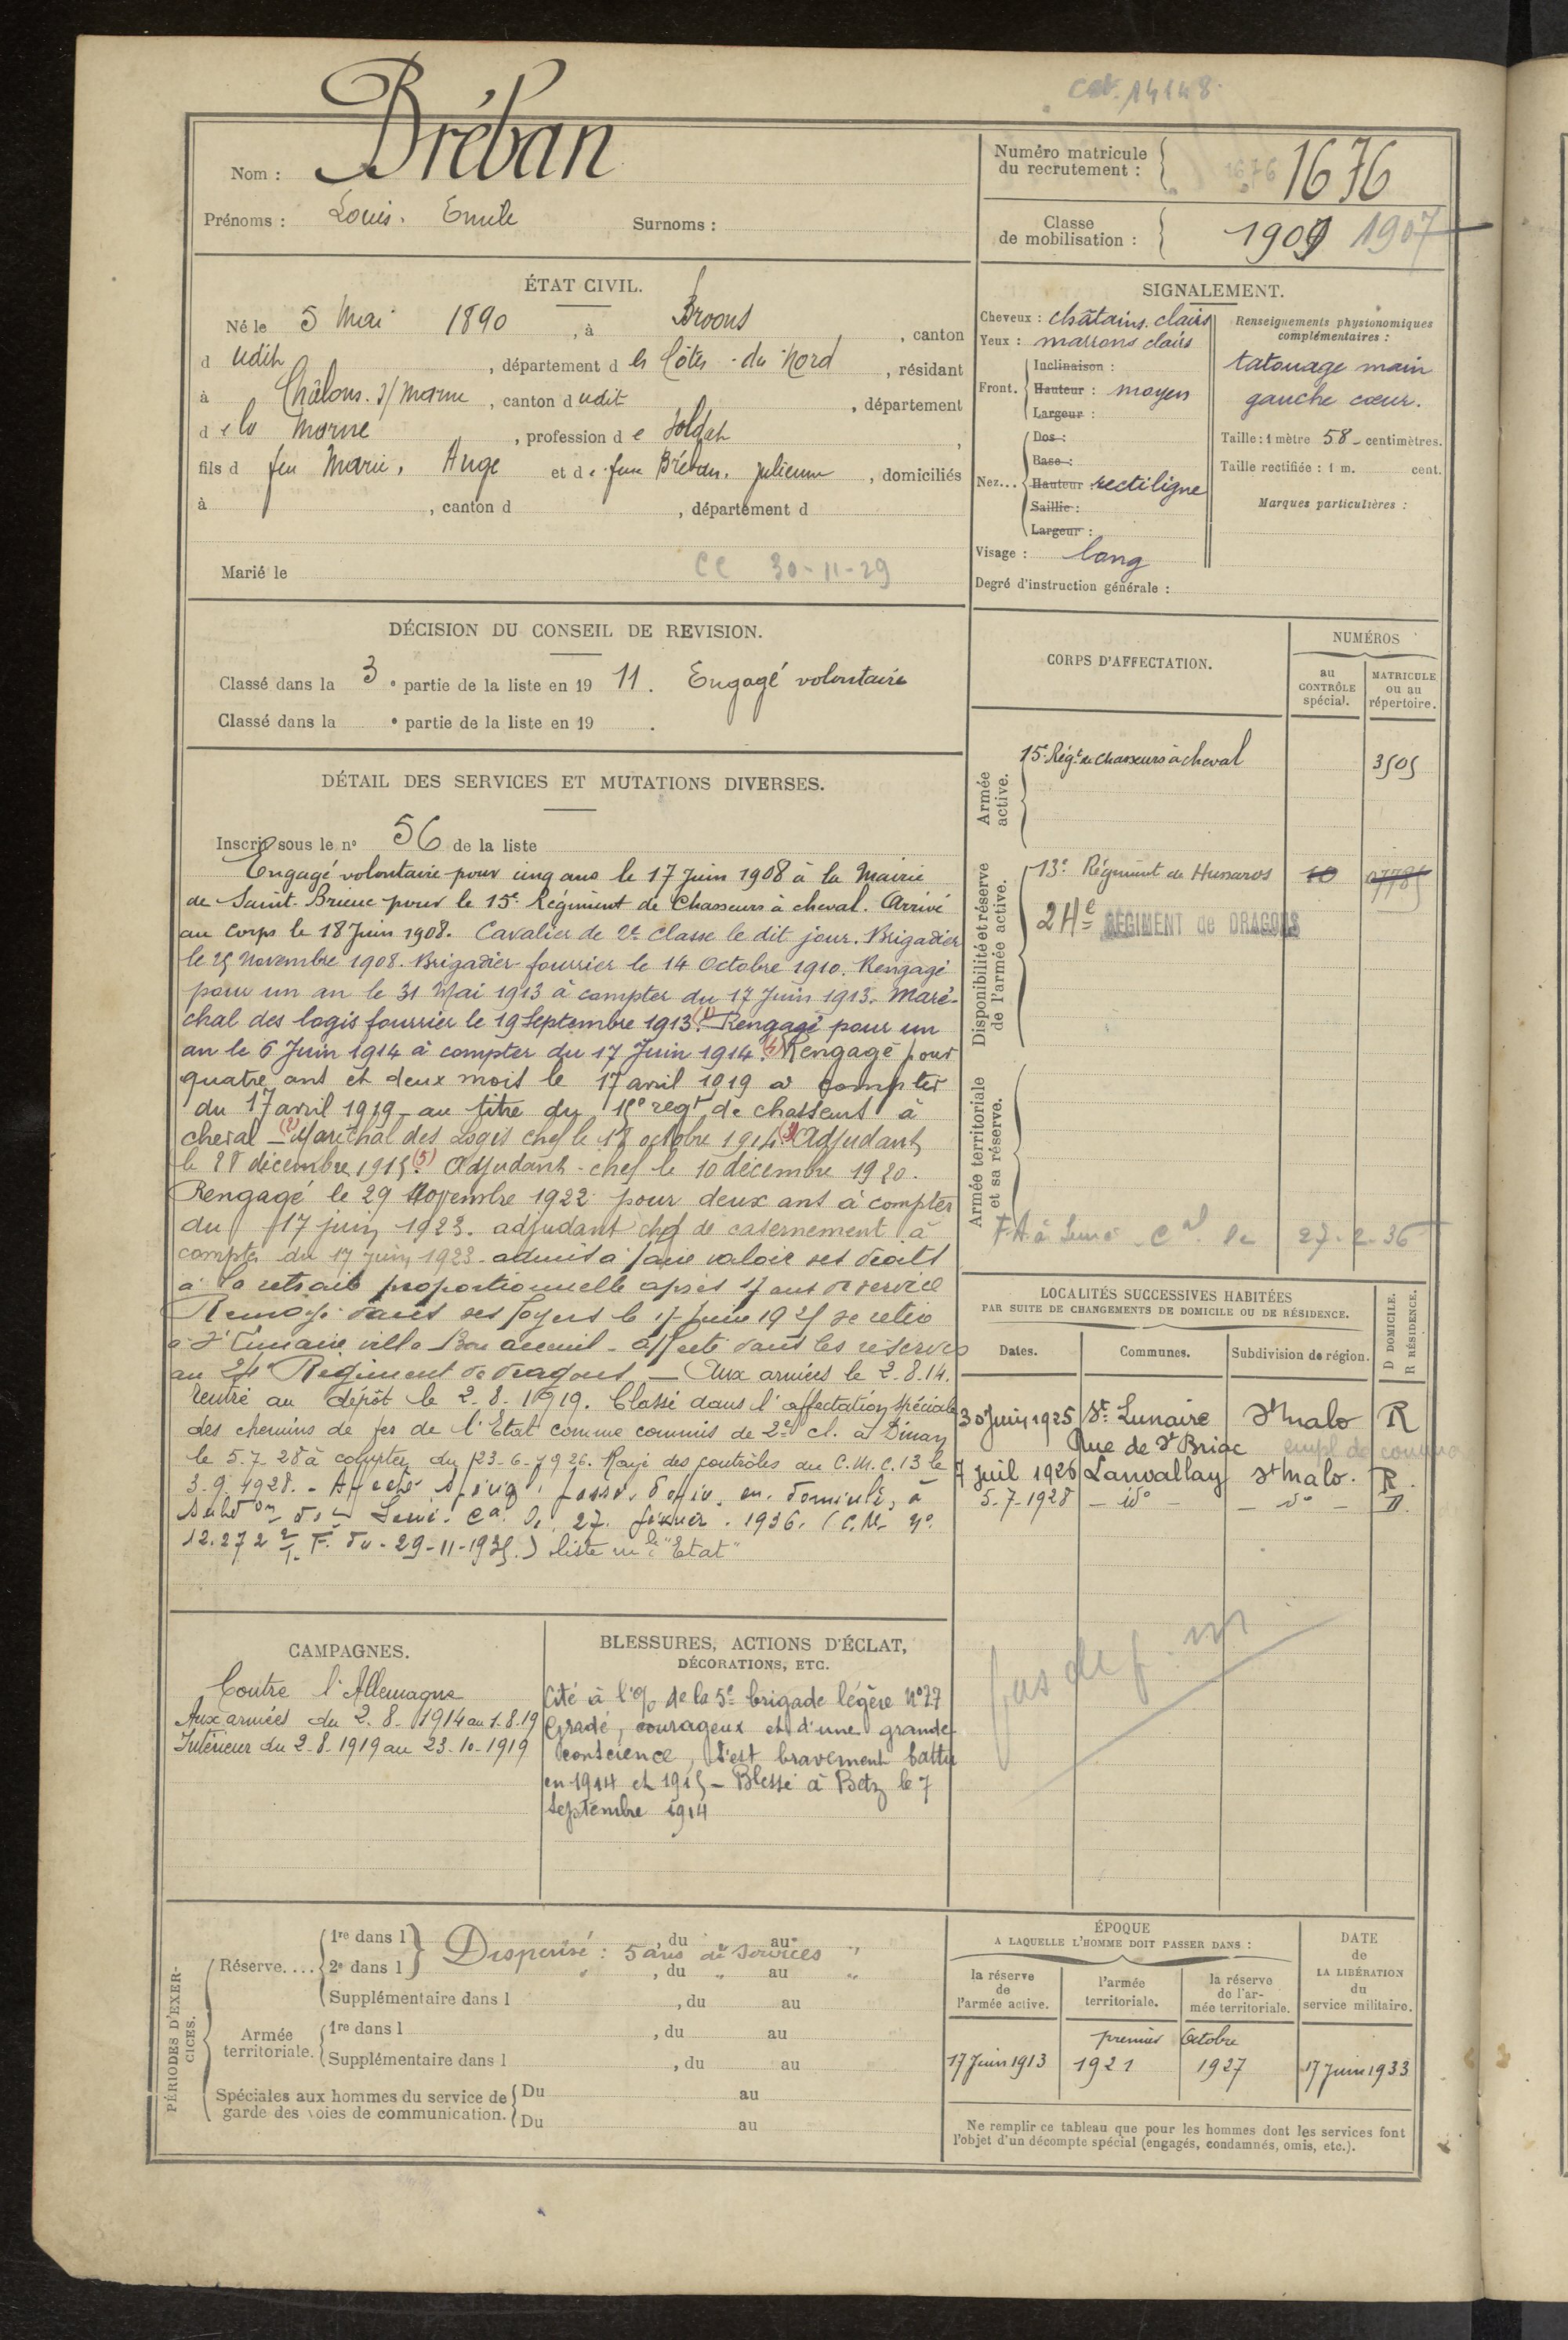 cat. 14148.
Nom : Bréban
Prénoms : Louis. Emile Surnoms :
Numéro matricule
du recrutement : 1676 1676
Classe
de mobilisation : 1909 1907
ÉTAT CIVIL.
Né le 5 Mai 1890, à Broons, canton
d udit, département d es Côtes-du-Nord, résidant
à Châlons. s/ Marne, canton d udit, département
d e la Marne, profession d e soldat,
fils d feu Marie, Ange et d e feue Bréban, Julienne, domiciliés
à , canton d , département d
Marié le CC 30-11-29
SIGNALEMENT.
Cheveux : châtains. clairs
Yeux : marrons clairs
Front. Inclinaison :
Hauteur : moyen
Largeur :
Nez... Dos :
Base :
Hauteur : rectiligne
Saillie :
Largeur :
Visage : long
Degré d'instruction générale :
Renseignements physionomiques
complémentaires :
tatouage main
gauche cœur.
Taille : 1 mètre 58 - centimètres.
Taille rectifiée : 1 m. cent.
Marques particulières :
DÉCISION DU CONSEIL DE REVISION.
Classé dans la 3e partie de la liste en 19 11. Engagé volontaire
Classé dans la e partie de la liste en 19 .
DÉTAIL DES SERVICES ET MUTATIONS DIVERSES.
Inscrit sous le n° 56 de la liste
Engagé volontaire pour cinq ans le 17 Juin 1908 à la Mairie
de Saint-Brieuc pour le 15e Régiment de Chasseurs à cheval. Arrivé
au corps le 18 Juin 1908. Cavalier de 2e classe le dit jour. Brigadier
le 25 Novembre 1908. Brigadier fourrier le 14 Octobre 1910. Rengagé
pour un an le 31 Mai 1913 à compter du 17 Juin 1913. Maré-
chal des logis fourrier le 19 Septembre 1913. (1) Rengagé pour un
an le 6 Juin 1914 à compter du 17 Juin 1914. (4) Rengagé pour
quatre ans et deux mois le 17 avril 1919 à compter
du 17 avril 1919 - au titre du 15e régt de chasseurs à
cheval - (2) Maréchal des Logis chef le 18 octobre 1914. (3) Adjudant
le 28 décembre 1915. (5) Adjudant-chef le 10 décembre 1920.
Rengagé le 29 Novembre 1922 pour deux ans à compter
du 17 juin 1923. adjudant chef de casernement à
compter du 17 juin 1923. admis à faire valoir ses droits
à la retraite proportionnelle après 17 ans de service
Renvoyé dans ses foyers le 17 Juin 1925 se retire
à St Lunaire villa Bon accueil - affecté dans les réserves
au 24e Régiment de dragons - Aux armées le 2.8.14.
rentré au dépôt le 2.8.1919. Classé dans l'affectation spéciale
des chemins de fer de l'Etat comme commis de 2e cl. à Dinan
le 5.7.28 à compter du 23-6-1926. Rayé des contrôles du C.M.C. 13 le
3.9.1928. - Affecté
27. février. 1936. (C.M. n°
12.272 du-29-11-1935.) liste "Etat"
CORPS D'AFFECTATION.
NUMÉROS
au
CONTRÔLE
spécial.
MATRICULE
ou au
répertoire.
Armée
active.
15e Régt de Chasseurs à cheval 3505
Disponibilité et réserve
de l'armée active.
13e Régiment de Hussards 10
24e RÉGIMENT de DRAGONS
Armée territoriale
et sa réserve.
27-2-36
LOCALITÉS SUCCESSIVES HABITÉES
PAR SUITE DE CHANGEMENTS DE DOMICILE OU DE RÉSIDENCE.
Dates. Communes. Subdivision de région. D DOMICILE. R RÉSIDENCE.
30 juin 1925 St. Lunaire St malo R
Rue de St Briac
7 juil 1926 Lanvallay St malo. R.
5-7-1928 - id° - - d° - D.
CAMPAGNES.
Contre l'Allemagne
Aux armées du 2.8.1914 au 1.8.19
Intérieur du 2-8-1919 au 23-10-1919
BLESSURES, ACTIONS D'ÉCLAT,
DÉCORATIONS, ETC.
Cité à l'o/ de la 5e brigade légère N°27
Gradé, courageux et d'une grande
conscience, s'est bravement battu
en 1914 et 1915 - Blessé à Betz le 7
Septembre 1914
PÉRIODES D'EXER-
CICES.
Réserve.... 1re dans l , du au
Dispensé : 5 ans de services "
2e dans l , du " au "
Supplémentaire dans l , du au
Armée
territoriale. 1re dans l , du au
Supplémentaire dans l , du au
Spéciales aux hommes du service de
garde des voies de communication. Du au
Du au
ÉPOQUE
A LAQUELLE L'HOMME DOIT PASSER DANS :
la réserve
de
l'armée active.
l'armée
territoriale.
la réserve
de l'ar-
mée territoriale.
DATE
de
LA LIBÉRATION
du
service militaire.
premier Octobre
17 Juin 1913 1921 1927 17 Juin 1933
Ne remplir ce tableau que pour les hommes dont les services font
l'objet d'un décompte spécial (engagés, condamnés, omis, etc.).